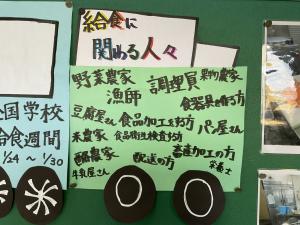 給食に
関める人々
全国学校
給食週間
1/24～1/30
野菜農家
漁師
調理員
果物農家
食器具を作る方
豆腐屋さん
食品加工をする方
パン屋さん
米農家
食品衛生検査する方
酪農家
牛乳屋さん
配送の方
畜産加工の方
栄養士